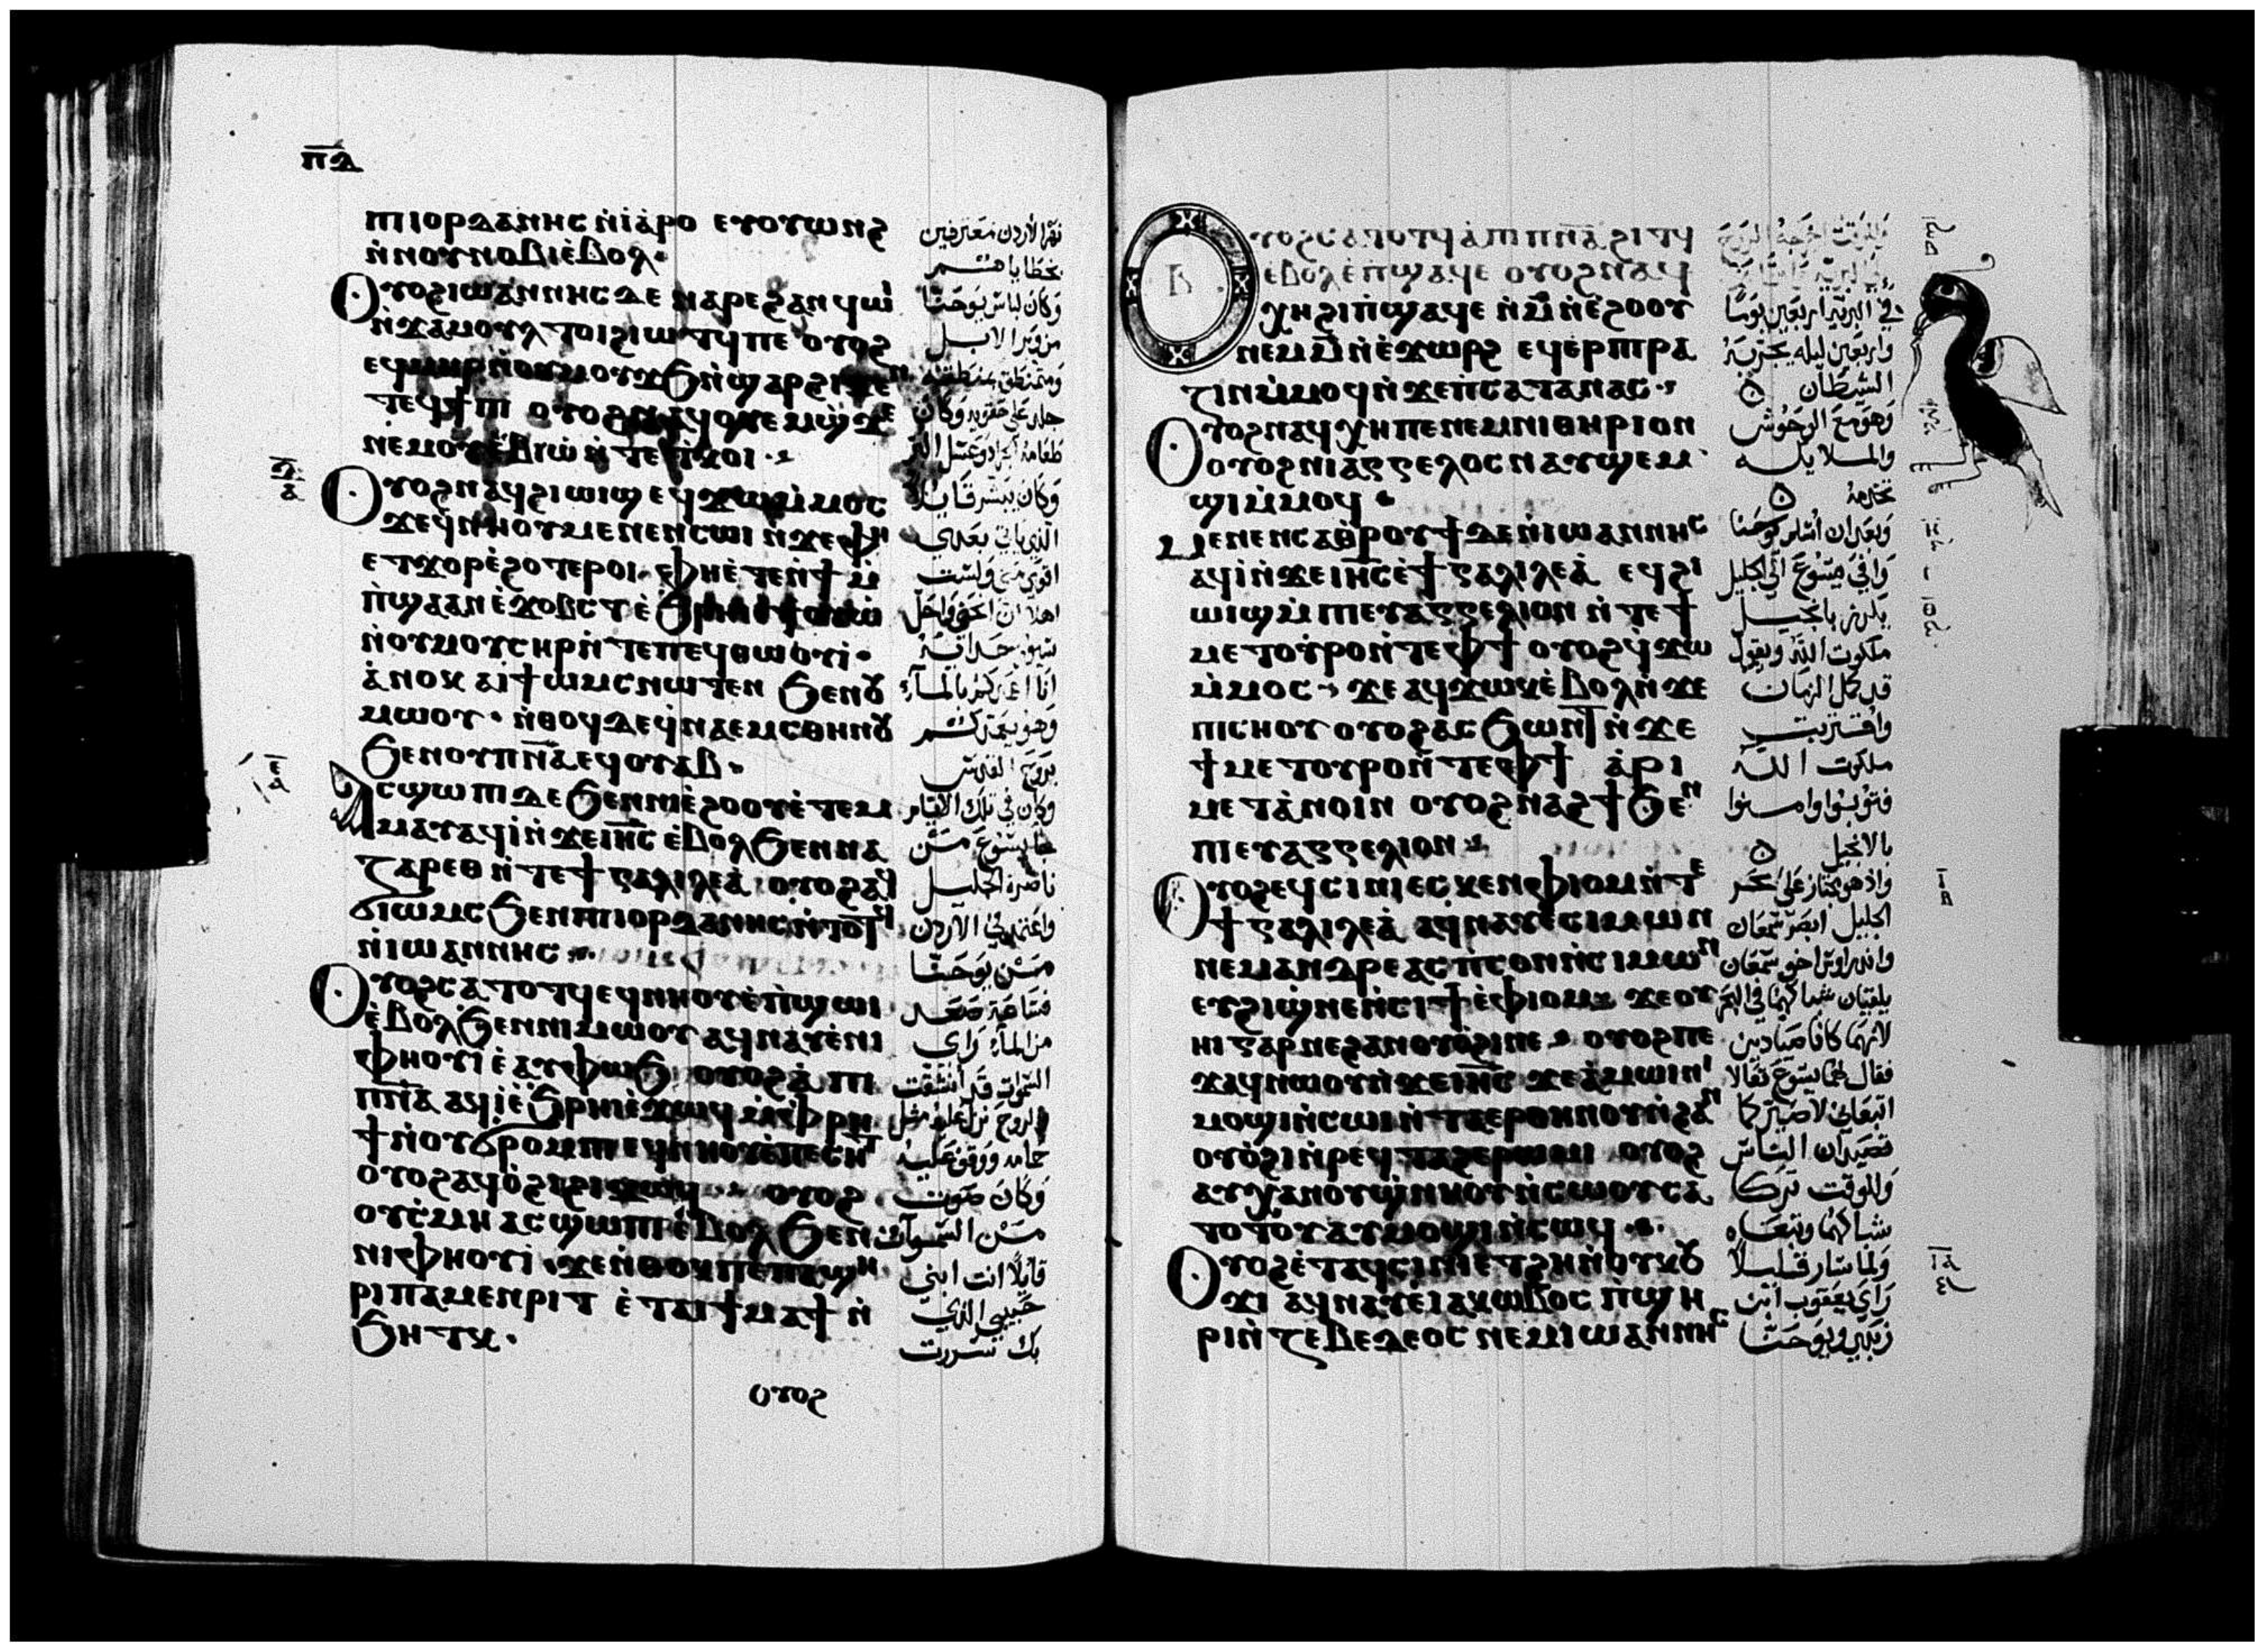 ⲡⲇ
ⲡⲓⲓⲟⲣⲇⲁⲛⲏⲥ ⲛ̀ⲓⲁⲣⲟ ⲉⲩⲟⲩⲱⲛϩ
ⲛ̀ⲛⲟⲩⲛⲟⲃⲓ ⲉ̀ⲃⲟⲗ
ⲟⲩⲟϩ ⲓⲱⲁⲛⲛⲏⲥ ⲇⲉ ⲛⲁⲣⲉ ϩⲁⲛϥⲱⲓ
ⲛ̀ϫⲁⲙⲟⲩⲗ ⲧⲟⲓ ϩⲓⲱⲧϥ ⲡⲉ ⲟⲩⲟϩ
ⲧⲉϥϯⲡⲓ ⲟⲩⲟϩ ⲛⲁϥⲟⲩⲉⲙ ϣϫⲉ
ⲛⲉⲙ ⲟⲩⲉⲃⲓⲱ ⲛ̀ⲧⲉ ⲧⲕⲟⲓ
ⲇ
ⲁ
ⲟⲩⲟϩ ⲛⲁϥϩⲓⲱⲓϣ ⲉϥϫⲱ ⲙ̀ⲙⲟⲥ
ϫⲉ ϥ̀ⲛⲏⲟⲩ ⲙⲉⲛⲉⲛⲥⲱⲓ ⲛ̀ϫⲉ ⲫⲏ
ⲉⲧϫⲟⲣ ⲉ̀ϩⲟⲧⲉⲣⲟⲓ ⲫⲏ ⲉ̀ⲧⲉ ⲛ̀ϯⲙ̀
ⲡ̀ϣⲁ ⲁⲛ ⲉ̀ⲭⲟⲃⲥⲧ ⲉ̀
ⲛ̀ⲟⲩⲙⲟⲩⲥⲏⲣ ⲛ̀ⲧⲉ ⲡⲉϥⲑⲱⲟⲩⲓ̀
ⲁ̀ⲛⲟⲕ ⲁⲓϯⲱⲙⲥ ⲛⲱⲧⲉⲛ ϧⲉⲛ ⲟⲩ
ⲙⲱⲟⲩ ⲛ̀ⲑⲟϥ ⲇⲉ ϥ̀ⲛⲁⲉⲙⲥ ⲑⲏⲛⲟⲩ
ϧⲉⲛ ⲟⲩⲡⲛⲁ ⲉϥⲟⲩⲁⲃ
ⲉ
ⲁ
ⲁⲥϣⲱⲡⲓ ⲇⲉ ϧⲉⲛ ⲛⲓⲉ̀ϩⲟⲟⲩ ⲉ̀ⲧⲉⲙ
ⲙⲁⲩ ⲁϥⲓ̀ ⲛ̀ϫⲉ ⲓⲏⲥ ⲉ̀ⲃⲟⲗ ϧⲉⲛ ⲛⲁ
ⲍⲁⲣⲉⲑ ⲛ̀ⲧⲉ ϯⲅⲁⲗⲓⲗⲉⲁ̀ ⲟⲩⲟϩ ⲁϥ
ϭⲓⲱⲙⲥ ϧⲉⲛ ⲡⲓⲓⲟⲣⲇⲁⲛⲏⲥ ⲛ̀ⲧⲟⲧϥ
ⲛ̀ⲓⲱⲁⲛⲛⲏⲥ
ⲟⲩⲟϩ ⲥⲁⲧⲟⲧϥ ⲉϥⲛⲏⲟⲩ ⲉ̀ⲡ̀ϣⲱⲓ
ⲉ̀ⲃⲟⲗ ϧⲉⲛ ⲡⲓⲙⲱⲟⲩ ⲁϥⲛⲁⲩ ⲉ̀ⲛⲓ
ⲫⲏⲟⲩⲓ̀ ⲉ̀ⲁⲩⲫⲱϧ ⲟⲩⲟϩ ⲁ̀ ⲡⲓ
ⲡⲛⲁ ⲁϥⲓ̀ ⲉ̀ϧⲣⲏⲓ ⲉ̀ϫⲱϥ ⲙ̀ⲫⲣⲏ
ϯ ⲛ̀ⲟⲩϭⲣⲟⲙⲡⲓ ⲉϥⲛⲏⲟⲩ ⲉ̀ⲡⲉⲥⲏⲧ
ⲟⲩⲟϩ ⲁϥⲟ̀ϩⲓ ϩⲓϫⲱϥ ⲟⲩⲟϩ
ⲟⲩⲥ̀ⲙⲏ ⲁⲥϣⲱⲡⲓ ⲉ̀ⲃⲟⲗ ϧⲉⲛ
ⲛⲓⲫⲏⲟⲩⲓ̀ ϫⲉ ⲛ̀ⲑⲟⲕ ⲡⲉ ⲡⲁϣⲏ
ⲣⲓ ⲡⲁⲙⲉⲛⲣⲓⲧ ⲉ̀ⲧⲁⲓϯⲙⲁϯ ⲛ̀
ϧⲏⲧⲕ
ⲟⲩⲟϩ
نهر الاردن معترفين
بخطاياهم
وكان لباس يوحنا
من وبر الابل
ومتمنطق بمنطقة
جلد على حقويه وكان
طعامه الجراد وعسل البر
وكان يبشر قايلا
الذي ياتي بعدي
اقوى مني ولست
اهلا ان انحني واحل
سيور حذائه
انا اعمدكم بالماء
وهو يعمدكم
بروح القدس
وكان في تلك الايام
جا يسوع من
ناصرة الجليل
واعتمد في الاردن
من يوحنا
فساعة صعد
من الماء راى
السموات قد انشقت
والروح نزل عليه مثل
حمامه ووقف عليه
وكان صوت
من السموات
قايلا انت ابني
حبيبي الذي
بك سررت
ⲟⲩⲟϩ ⲥⲁⲧⲟⲧϥ ⲁ̀ ⲡⲓⲡⲛⲁ ϩⲓⲧϥ
ⲉ̀ⲃⲟⲗ ⲉ̀ⲡ̀ϣⲁϥⲉ ⲟⲩⲟϩ ⲛⲁϥ
ⲭⲏ ϩⲓ ⲡ̀ϣⲁϥⲉ ⲛ̀ⲙ̄ ⲛ̀ⲉ̀ϩⲟⲟⲩ
ⲛⲉⲙ ⲙ̄ ⲛ̀ⲉ̀ϫⲱⲣϩ ⲉϥⲉⲣⲡⲓⲣⲁ
ⲍⲓⲛ ⲙ̀ⲙⲟϥ ⲛ̀ϫⲉ ⲡ̀ⲥⲁⲧⲁⲛⲁⲥ
ⲟⲩⲟϩ ⲛⲁϥⲭⲏ ⲡⲉ ⲛⲉⲙ ⲛⲓⲑⲏⲣⲓⲟⲛ
ⲟⲩⲟϩ ⲛⲓⲁⲅⲅⲉⲗⲟⲥ ⲛⲁⲩϣⲉⲙ
ϣⲓ ⲙ̀ⲙⲟϥ
ⲙⲉⲛⲉⲛⲥⲁ ⲑⲣⲟⲩϯ ⲇⲉ ⲛ̀ⲓⲱⲁⲛⲛⲏⲥ
ⲁϥⲓ̀ ⲛ̀ϫⲉ ⲓⲏⲥ ⲉ̀ϯⲅⲁⲗⲓⲗⲉⲁ̀ ⲉϥϩⲓ
ⲱⲓϣ ⲙ̀ⲡⲓⲉⲩⲁⲅⲅⲉⲗⲓⲟⲛ ⲛ̀ⲧⲉ ϯ
ⲙⲉⲧⲟⲩⲣⲟ ⲛ̀ⲧⲉ ⲫϯ ⲟⲩⲟϩ ϥ̀ϫⲱ
ⲙ̀ⲙⲟⲥ ϫⲉ ⲁϥϫⲱⲕ ⲉ̀ⲃⲟⲗ ⲛ̀ϫⲉ
ⲡⲓⲥⲏⲟⲩ ⲟⲩⲟϩ ⲁⲥϧⲱⲛⲧ ⲛ̀ϫⲉ
ϯⲙⲉⲧⲟⲩⲣⲟ ⲛ̀ⲧⲉ ⲫϯ ⲁ̀ⲣⲓ
ⲙⲉⲧⲁ̀ⲛⲟⲓⲛ ⲟⲩⲟϩ ⲛⲁϩϯ ϧⲉⲛ
ⲡⲓⲉⲩⲁⲅⲅⲉⲗⲓⲟⲛ
ⲟⲩⲟϩ ⲉϥⲥⲓⲛⲓ ⲉⲥⲕⲉⲛ ⲫⲓⲟⲙ ⲛ̀ⲧⲉ
ϯⲅⲁⲗⲓⲗⲉⲁ̀ ⲁϥⲛⲁⲩ ⲉ̀ⲥⲓⲙⲱⲛ
ⲛⲉⲙ ⲁⲛⲇⲣⲉⲁⲥ ⲡⲥⲟⲛ ⲛ̀ⲥⲓⲙⲱⲛ
ⲉⲩϩⲓϣ̀ⲛⲉ ⲛ̀ⲥⲓϯ ⲉ̀ⲫⲓⲟⲙ ϫⲉ ⲟⲩ
ⲏⲓ ⲅⲁⲣ ⲛⲉ ϩⲁⲛⲟⲩⲟ̀ϩⲓ ⲛⲉ ⲟⲩⲟϩ ⲡⲉ
ϫⲁϥ ⲛⲱⲟⲩ ⲛ̀ϫⲉ ⲓⲏⲥ ϫⲉ ⲁ̀ⲙⲱⲓⲛⲓ
ⲙⲟϣⲓ ⲛ̀ⲥⲱⲓ ⲛ̀ⲧⲁⲉⲣ ⲑⲏⲛⲟⲩ ⲛ̀ϩⲁⲛ
ⲟⲩⲟ̀ϩⲓ ⲛ̀ⲣⲉϥⲧⲁϩⲉ ⲣⲱⲙⲓ ⲟⲩⲟϩ
ⲁⲩⲭⲁ ⲛⲟⲩϣ̀ⲛⲏⲟⲩ ⲛ̀ⲥⲱⲟⲩ ⲥⲁ
ⲧⲟⲧⲟⲩ ⲁⲩⲙⲟϣⲓ ⲛ̀ⲥⲱϥ
ⲟⲩⲟϩ ⲉ̀ⲧⲁϥⲥⲓⲛⲓ ⲉ̀ⲧϩⲏ ⲛ̀ⲟⲩⲕⲟⲩ
ϫⲓ ⲁϥⲛⲁⲩ ⲉ̀ⲓⲁⲕⲱⲃⲟⲥ ⲡ̀ϣⲏ
ⲣⲓ ⲛ̀ⲍⲉⲃⲉⲇⲉⲟⲥ ⲛⲉⲙ ⲓⲱⲁⲛⲛⲏⲥ
في البرية اربعين يوما
واربعين ليله يجربه
الشيطان
وهو مع الوحوش
والملايكه
تخدمه
وبعد ان اسلم يوحنا
وافى يسوع الى الجليل
يكرز بانجيل
ملكوت الله ويقول
قد كمل الزمان
واقتربت
ملكوت الله
فتوبوا وامنوا
بالانجيل
واذ هو مجتاز على بحر
الجليل ابصر سمعان
واندراوس اخو سمعان
يلقيان شباكهما في البحر
لانهما كانا صيادين
فقال لهما يسوع تعالا
اتبعاني لاصيركما
تصيدان الناس
وللوقت تركا
شباكهما وتبعاه
ولما سار قليلا
راى يعقوب ابن
زبدي ويوحنا